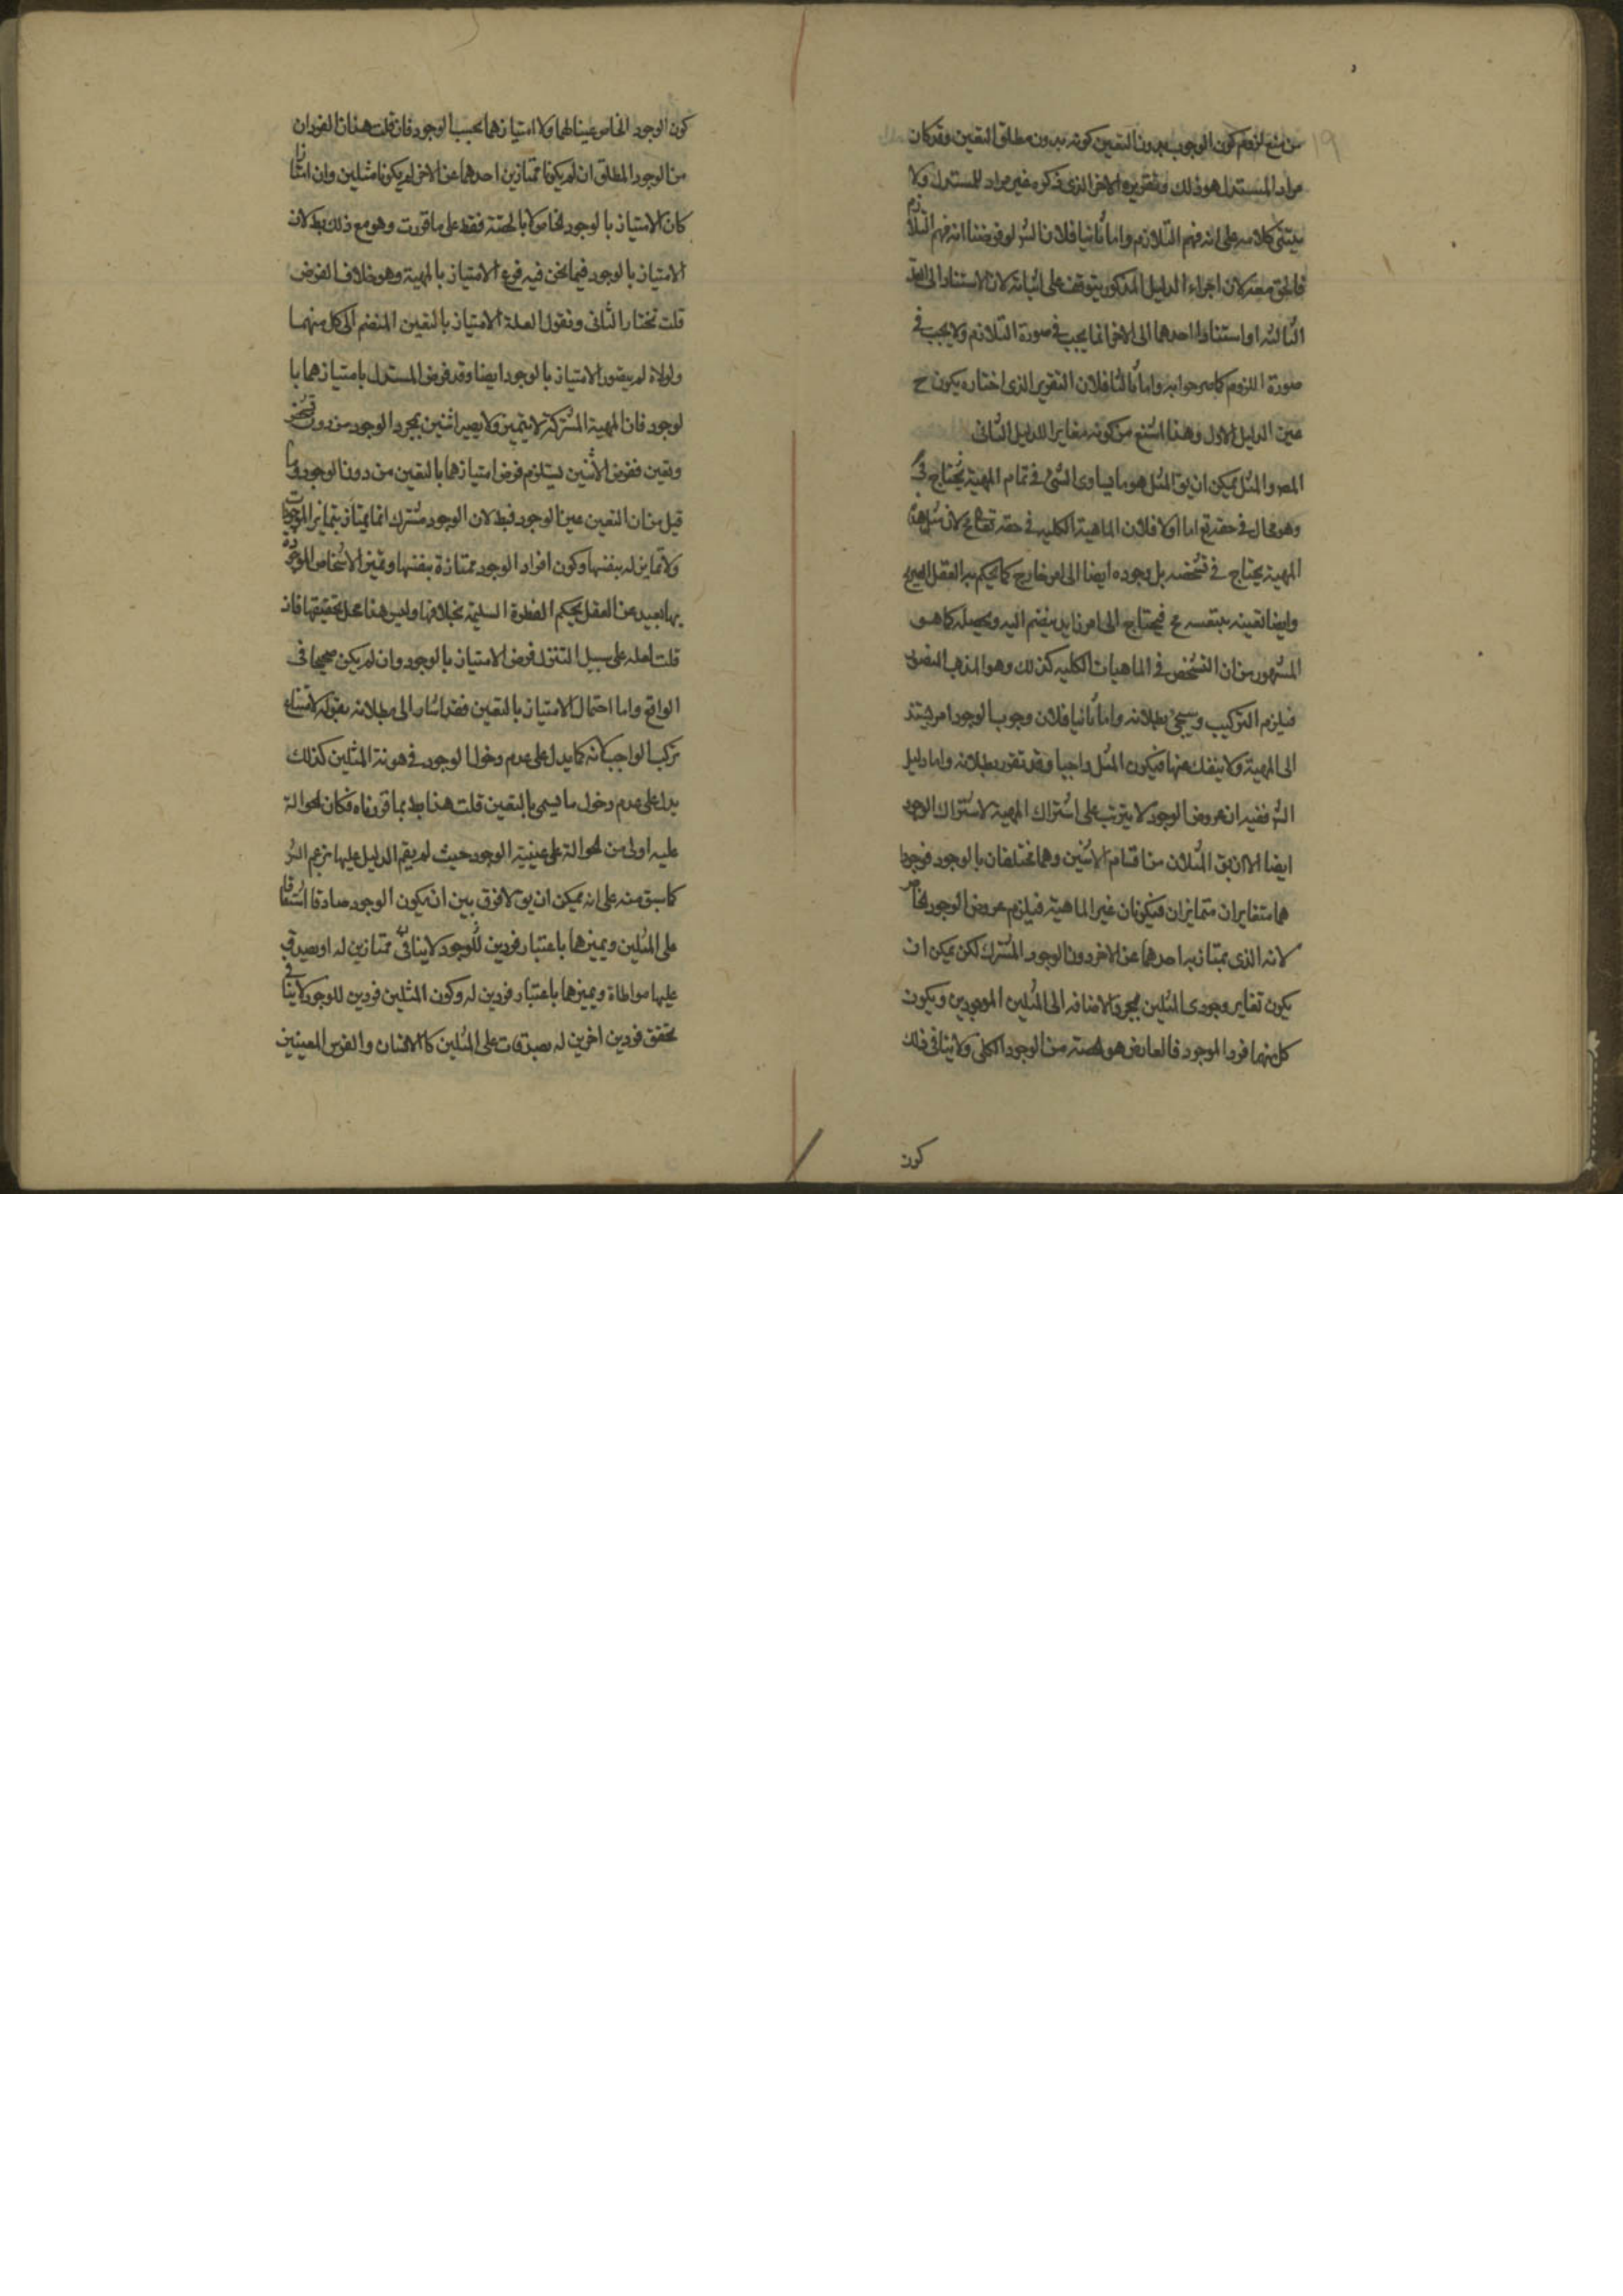 ١٩
من منع لزوم كون الوجوب بدون التعين كونه بدون مطلق التعين وقد كان
مراد المستدل هو ذلك وتقريره الاخر الذى ذكره غير مراد للمستدل ولا
يبتنى كلامه على انه فهم التلازم واما ثانيا فلان الش لو فرضنا انه فهم التلازم
فالحق معه لان اجراء الدليل المذكور يتوقف على اثباته لان الاستناد الى العلة
الثالثه او استناد احدهما الى الاخر انما يجب فى صورة التلازم ولا يجب فى
صورة اللزوم كما صرحوا به واما ثالثا فلان التقرير الذى اختاره يكون ح
عين الدليل الاول وهذا اشنع من كونه مغايرا للدليل الثانى
المص والمثل يمكن ان يق المثل هو ما يساوى الشئ فى تمام المهية فيحتاج فى
وهو محال فى حقه تع اما اولا فلان الماهية الكليه فى حقه تعالى مح لان مثل هذه
المهية يحتاج فى تشخصه بل وجوده ايضا الى امر خارج كما يحكم به العقل الصريح
وايضا تعينه بنفسه مح فيحتاج الى امر زايد ينضم اليه ويحصله كما هو
المشهور من ان التشخص فى الماهيات الكليه كذلك وهو المذهب المنصور
فيلزم التركيب وسيجئ بطلانه واما ثانيا فلان وجوب الوجود امر يستند
الى المهية ولا ينفك عنها فيكون المثل واجبا وقد تقرر بطلانه واما دليل
الش ففيه ان عروض الوجود لا يترتب على اشتراك المهية لاشتراك الوجود
ايضا الا ان يق المثلان من اقسام الاثنين وهما مختلفان بالوجود فوجودا
هما متغايران متمايزان فيكونان غير الماهية فيلزم عروض الوجود الخاص
لانه الذى يمتاز به احدهما عن الاخر دون الوجود المشترك لكن يمكن ان
يكون تغاير وجودى المثلين بمجرد الاضافه الى المثلين الموجودين ويكون
كل منهما فردا لموجود فالعارض هو الحصة من الوجود الكلى ولا ينافى ذلك
كون
كون الوجود الخاص عينا لهما ولا امتيازهما بحسب الوجود فان قلت هذان الفردان
من الوجود المطلق ان لم يكونا ممتازين احدهما عن الاخر لم يكونا مثلين وان امتازا
كان الامتياز بالوجود الخاص لا بالحصة فقط على ما قررت وهو مع ذلك بط لان
الامتياز بالوجود فيما نحن فيه فرع الامتياز بالمهية وهو خلاف الفرض
قلت نختار الثانى ونقول العلة الامتياز بالتعين المنضم الى كل منهما
ولولاه لم يتصور الامتياز بالوجود ايضا وقد فرض المستدل بامتيازهما با
لوجود فان المهية المشتركة لا يتميز ولا يصير اثنين بمجرد الوجود من دون تشخص
وتعين ففرض الاثنين يستلزم فرض امتيازهما بالتعين من دون الوجود وما
قيل من ان التعين عين الوجود فبط لان الوجود مشترك انما يمتاز بتمايز الموجودات
ولا تمايز له بنفسها وكون افراد الوجود ممتازة بنفسها وتميز الاشخاص الموجودة
بها بعيد عن العقل يحكم الفطرة السليمة بخلافها وليس هنا محل تحقيقها فان
قلت لعله على سبيل التنزل فرض الامتياز بالوجود وان لم يكن صحيحا فى
الواقع واما احتمال الامتياز بالتعين فقد اشار الى بطلانه بقوله لامتناع
تركب الواجب لانه كما يدل على عدم دخول الوجود فى هوية المثلين كذلك
يدل على عدم دخول ما يسمى بالتعين قلت هذا بط بما قررناه فكان الحوالة
عليه اولى من الحوالة على عينية الوجود حيث لم يقم الدليل عليها بزعم الش
كما سبق منه على انه يمكن ان يق لا فرق بين ان يكون الوجود صادقا اشتقاقا
على المثلين ويميزهما باعتبار فردين للوجود لا ينافى ممتازين له او يصدق
عليها مواطاة ويميزهما باعتبار فردين له وكون المثلين فردين للوجود لا ينافى
تحقق فردين اخرين له يصدقان على المثلين كالانسان والفرس المعينين